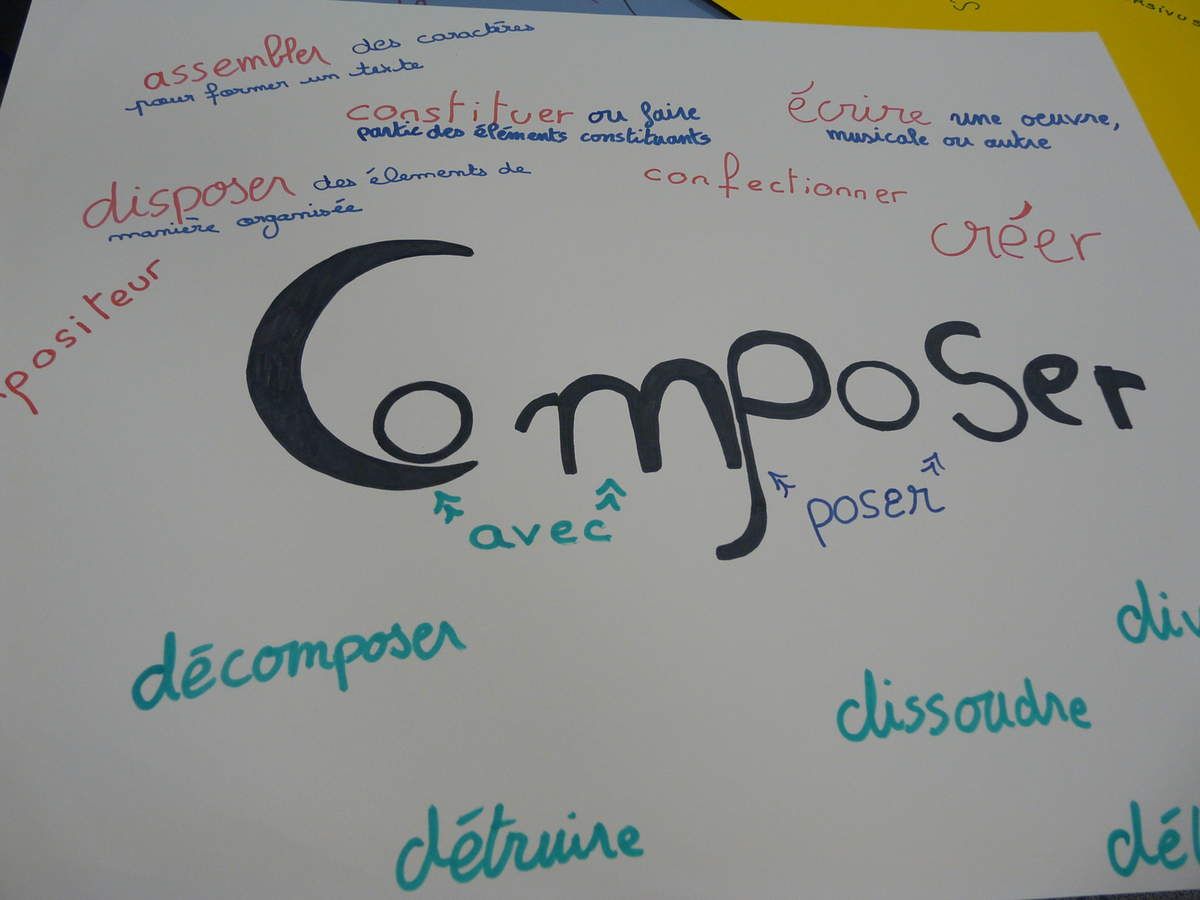 assembler des caractères
pour former un texte
constituer ou faire
partie des éléments constituants
écrire une oeuvre,
musicale ou autre
disposer des élements de
manière organisée
confectionner
créer
positeur
Composer
avec
poser
décomposer
div
dissoudre
détruire